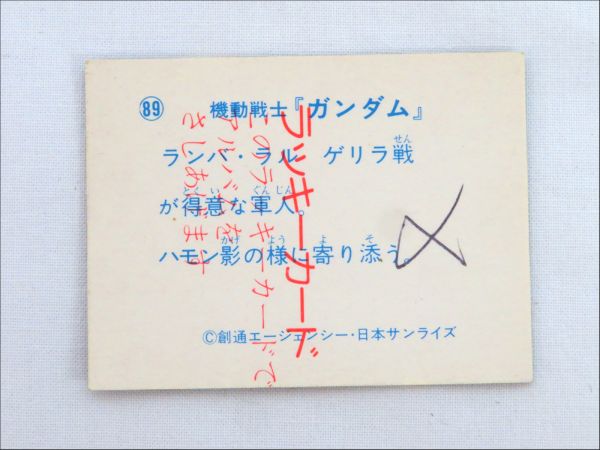 89 機動戦士『ガンダム』
ランバ・ラル ゲリラ戦
が得意な軍人。
ハモン影の様に寄り添う。
©創通エージェンシー・日本サンライズ
ラッキーカード
このラッキーカードで
アルバムを
さしあげます